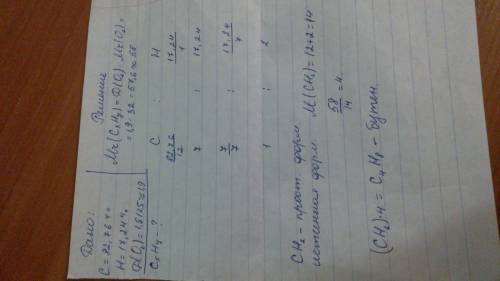 Дано:
C = 82,76 %
H = 17,24 %
D(O₂) = 1,8125 ≈ 1,9
CₓHᵧ - ?
Решение
Mr(CₓHᵧ) = D(O₂) · Mr(O₂) =
= 1,9 · 32 = 57,6 ≈ 58
C : H
82,76/12 17,24/1
7 : 17,24
7/7 : 17,24/7
1 : 2
CH₂ - прост. форм.
истенная форм. M(CH₂) = 12+2 = 14
58/14 = 4.
(CH₂)·4 = C₄H₈ - бутен.